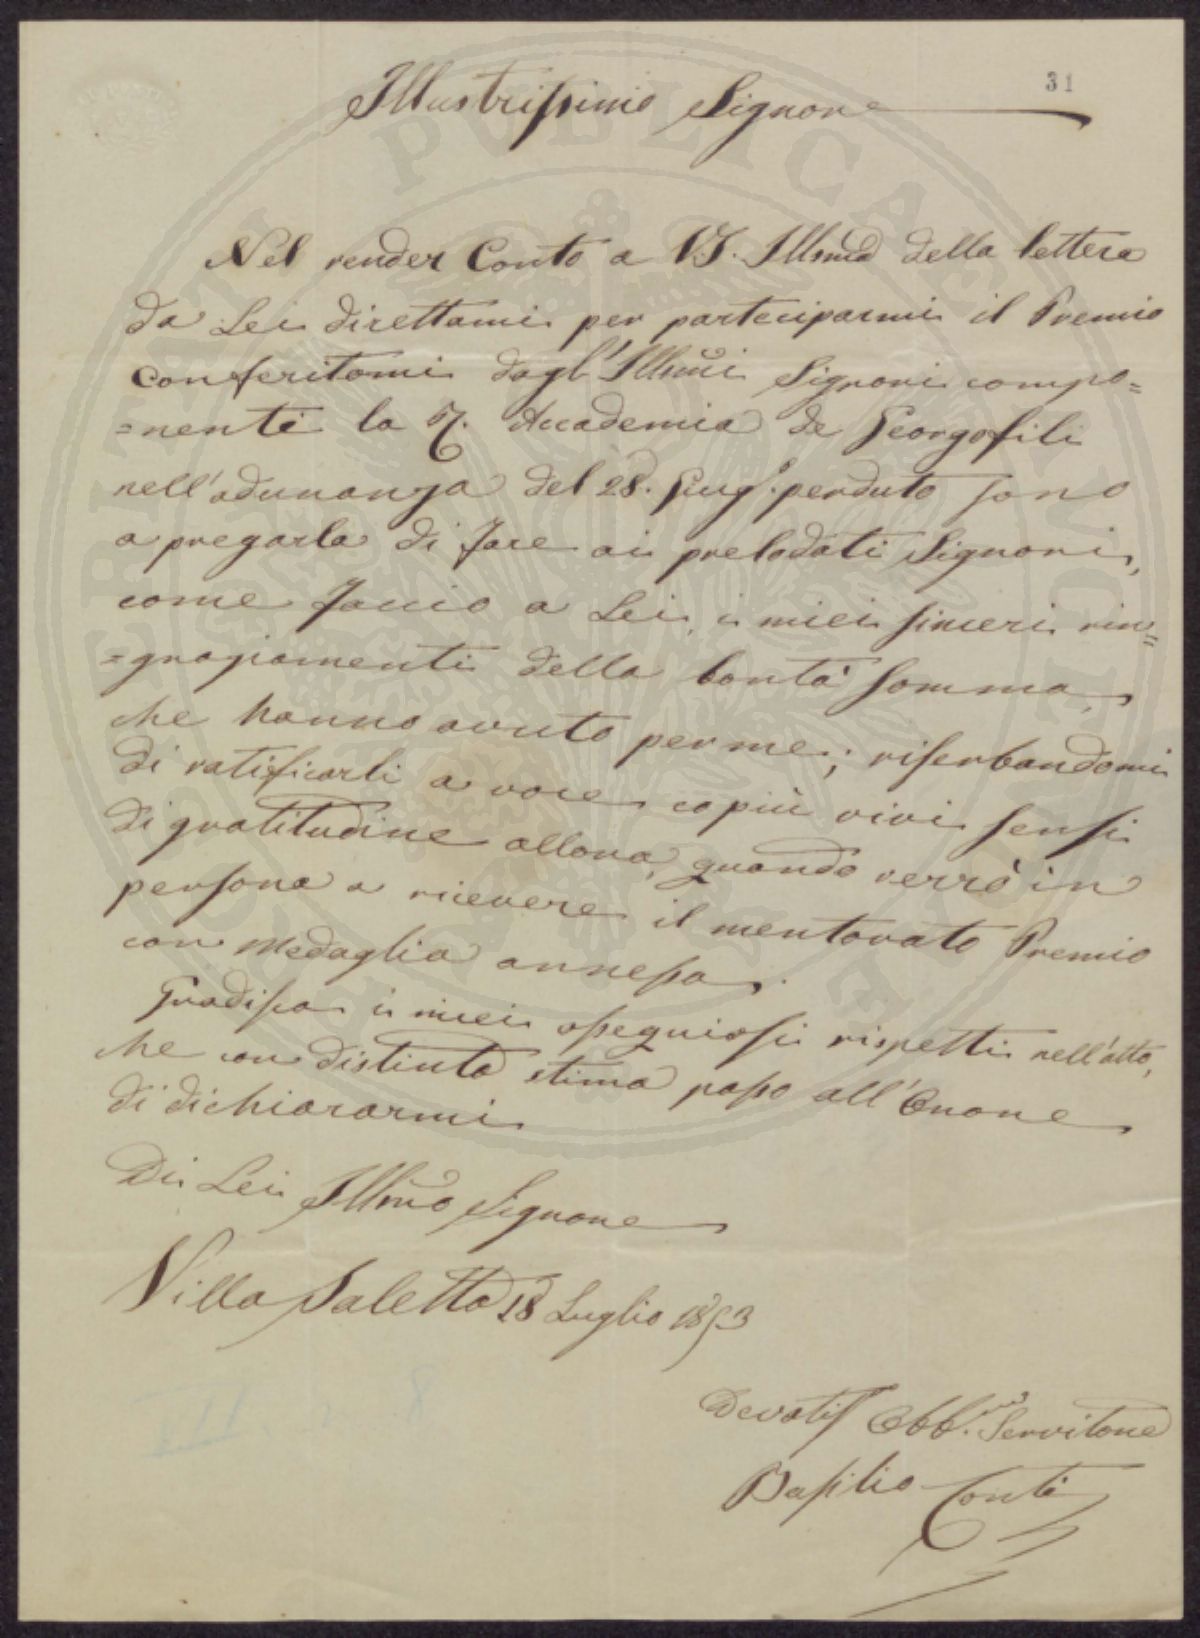 31
Illustrissimo Signore
Nel render Conto a V.S. Illma della lettera
da Lei direttami per parteciparmi il Premio
conferitomi dagl'Illmi Signori compo=
=nenti la R. Accademia de Georgofili
nell'adunanza del 28. Giugo. perduto sono
a pregarla di fare ai prelodati Signori,
come faccio a Lei, i miei sinceri rin=
=graziamenti della bontà somma,
che hanno avuto per me; riserbandomi
di ratificarli a voce co più vivi sensi
di gratitudine allora, quando verrò in
persona a ricevere il mentovato Premio
con Medaglia annessa.
Gradisca i miei ossequiosi rispetti nell'atto,
che con distinta stima passo all'Onore
di dichiararmi
Di Lei Illmo Signore
Villa Saletta 18 Luglio 1853
Devotis Obb.mo Servitore
Basilio Conti